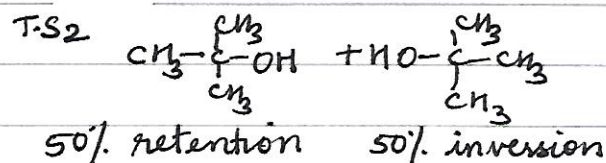 T.S2
CH3 CH3
CH3-C-OH + HO-C-CH3
CH3 CH3
50%. retention 50%. inversion